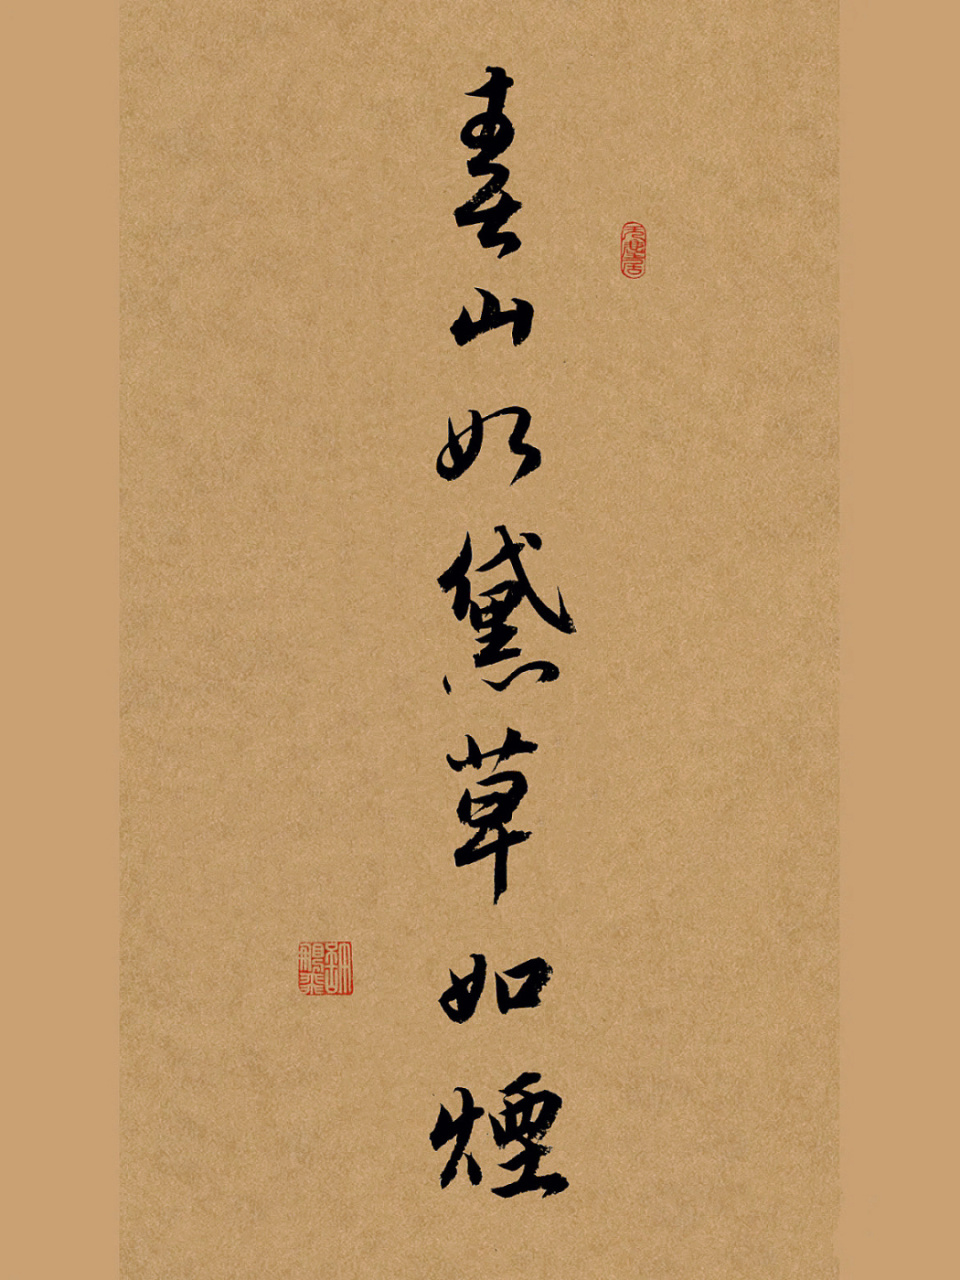 春山如黛草如煙